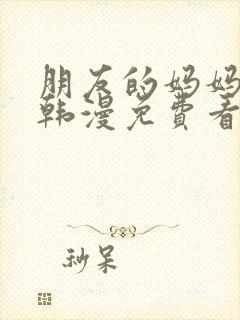 朋友的妈妈
韩漫免费看
秒呆